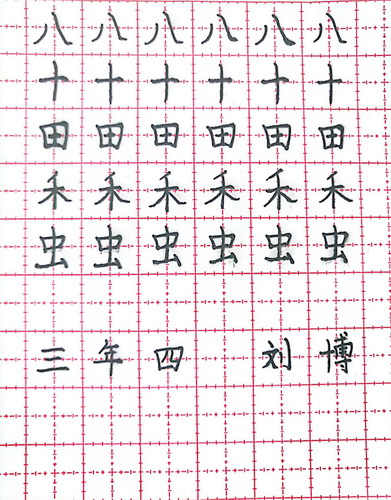 八八八八八八
十十十十十十
田田田田田田
禾禾禾禾禾禾
虫虫虫虫虫虫
三年四 刘博